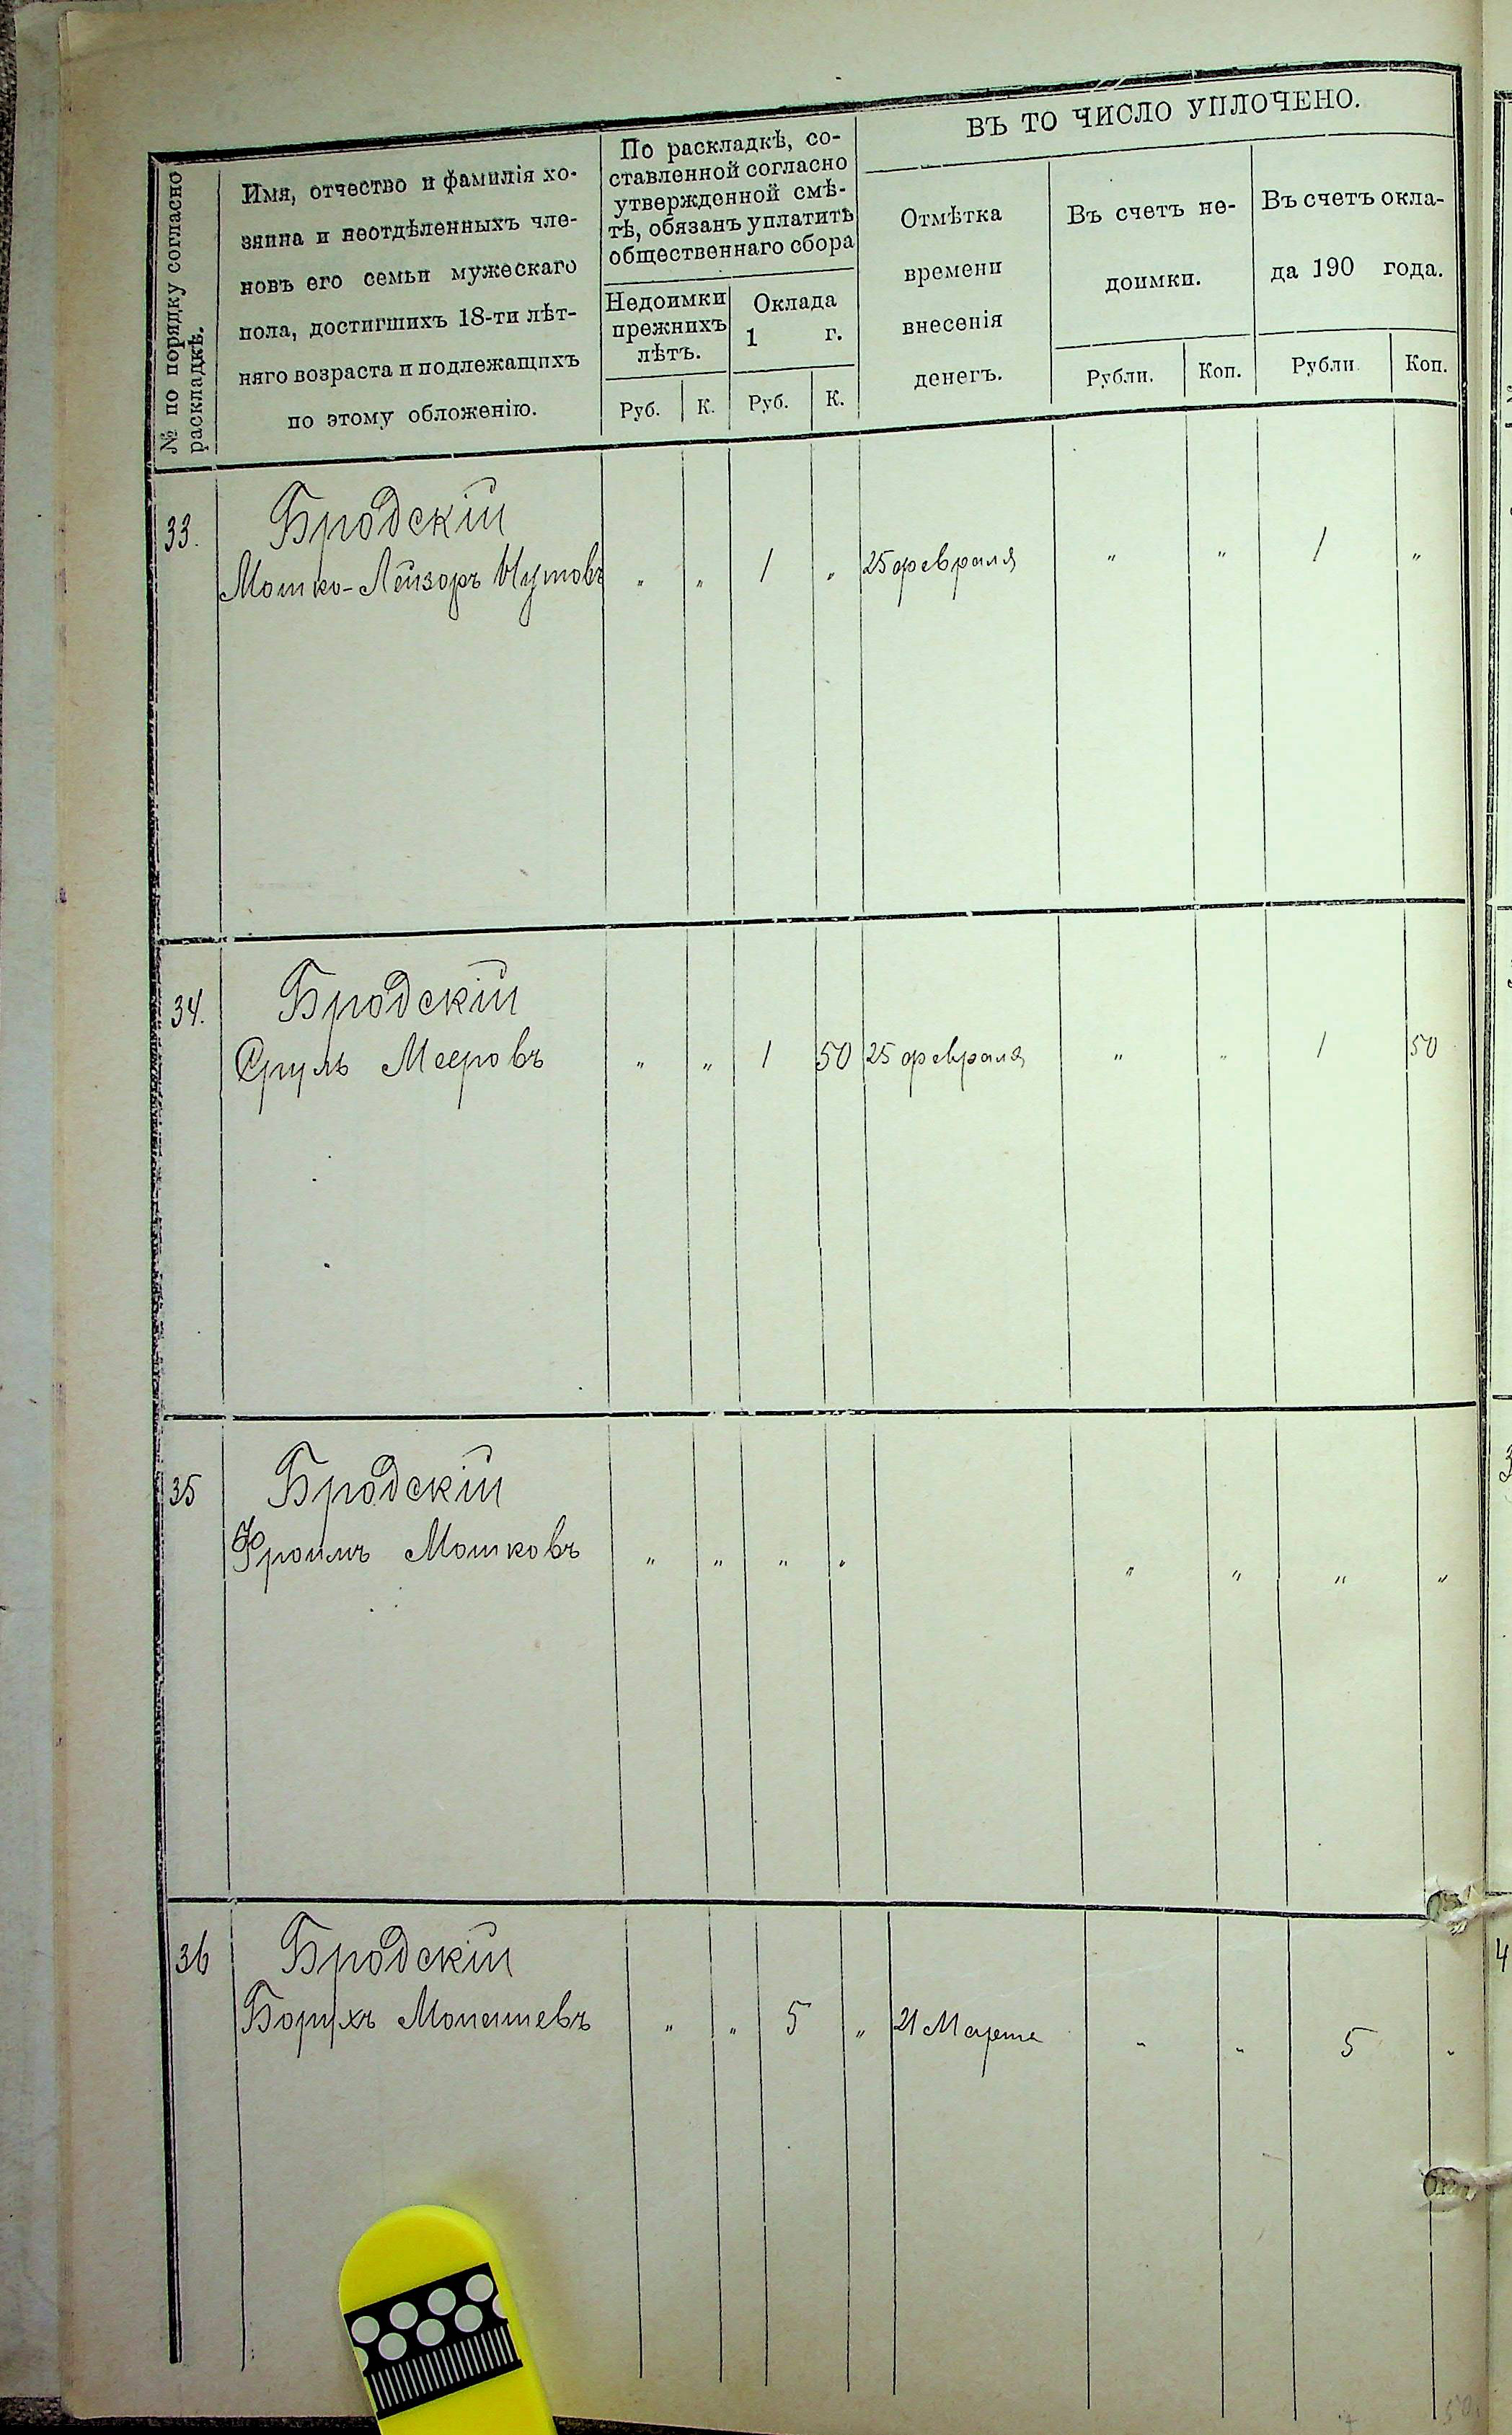 № по порядку согласно
раскладкѣ.
Имя, отчество и фамилія хо-
зяина и неотдѣленныхъ чле-
новъ его семьи мужескаго
пола, достигшихъ 18-ти лѣт-
няго возраста и подлежащихъ
по этому обложенію.
По раскладкѣ, со-
ставленной согласно
утвержденной смѣ-
тѣ, обязанъ уплатить
общественнаго сбора
Недоимки
прежнихъ
лѣтъ.
Оклада
1 г.
Руб. К. Руб. К.
ВЪ ТО ЧИСЛО УПЛОЧЕНО.
Отмѣтка
времени
внесенія
денегъ.
Въ счетъ не-
доимки.
Въ счетъ окла-
да 190 года.
Рубли. Коп. Рубли Коп.
33. Бродскій
Мошко-Лейзоръ Мутовъ " " 1 " 25 февраля " " 1 "
34. Бродскій
Сруль Мееровъ " " 1 50 25 февраля " " 1 50
35 Бродскій
Фроимъ Мошковъ " " " " " " " "
36 Бродскій
Борухъ Монашевъ " " 5 " 21 Марта " " 5 "